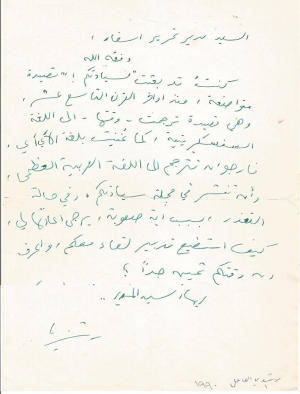 السيد مدير تحرير اسفار ،
وفقه الله
كنت قد بعثت لسيادتكم بـ "قصيدة
متواضعة ، منذ أواخر القرن التاسع عشر ،
وهي قصيدة ترجمت - وقتها - الى اللغة
السنسكريتية ، كما غنيت بلغة الآي آي ،
فارجو ان تترجم الى اللغة العربية العظمى ،
وأن تنشر في مجلة سيادتكم ، وفي حالة
التعذر ، بسبب أية صعوبة ، يرجى اعادتها لي ،
كيف استطيع تدبير لقاء معكم ، واعرف
ان وقتكم ثمين جداً ؟
١٩٩٠